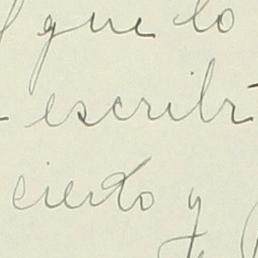 que lo
escribir
cierto y